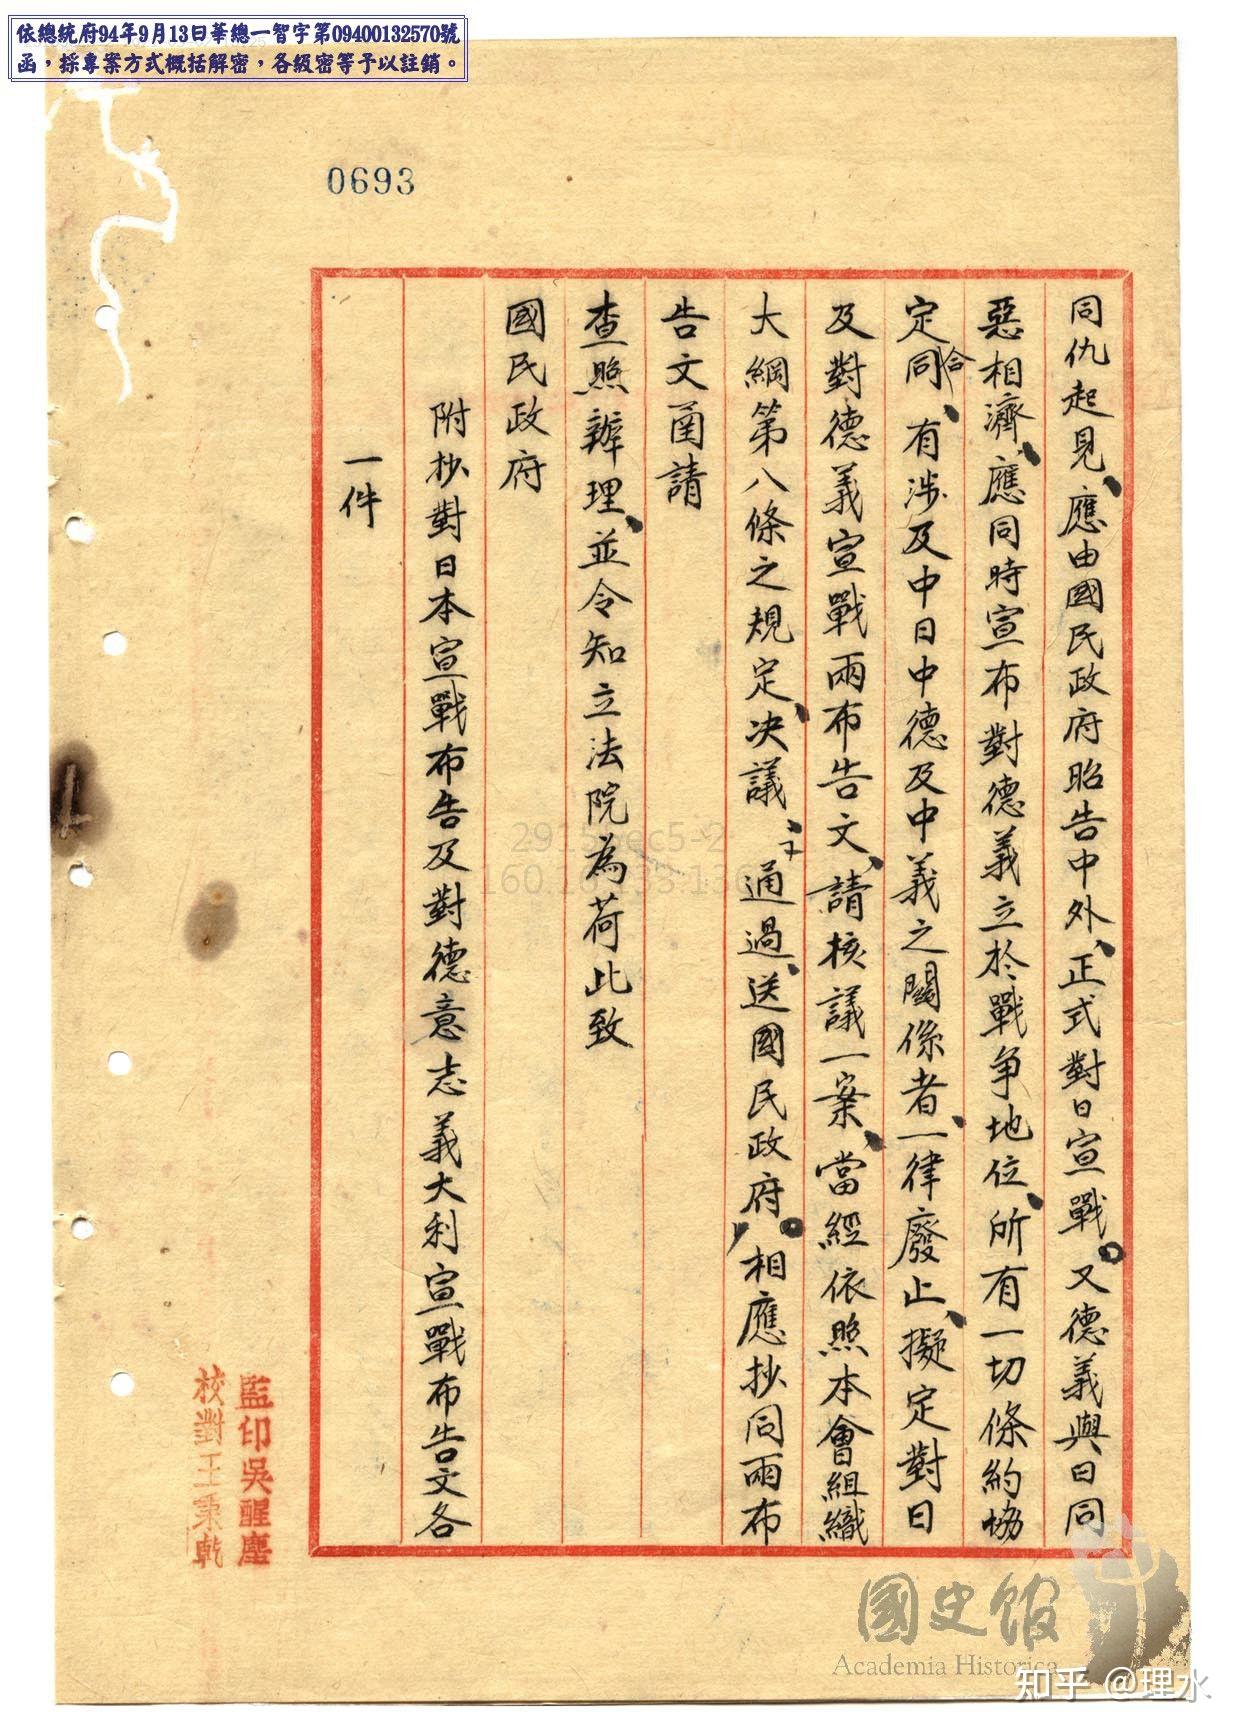 依總統府94年9月13日華總一智字第09400132570號
函，採專案方式概括解密，各級密等予以註銷。
0693
同仇起見、應由國民政府昭告中外、正式對日宣戰。又德義與日同
惡相濟、應同時宣布對德義立於戰爭地位、所有一切條約協
定合同、有涉及中日中德及中義之關係者、一律廢止、擬定對日
及對德義宣戰兩布告文、請核議一案、當經依照本會組織
大綱第八條之規定、決議、予通過、送國民政府。相應抄同兩布
告文函請
查照辦理、並令知立法院為荷此致
國民政府
附抄對日本宣戰布告及對德意志義大利宣戰布告文各
一件
監印吳醒塵
校對王秉乾
國史館
Academia Historica
知乎 @理水